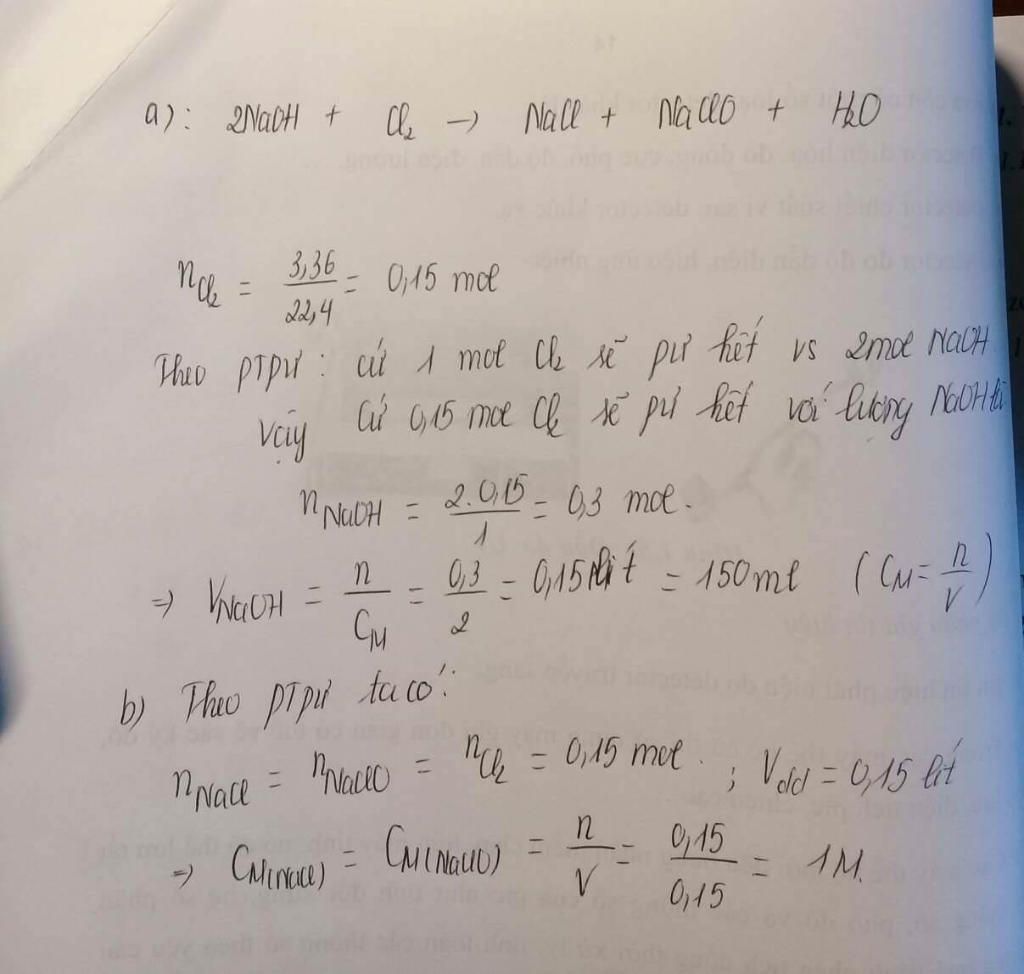 a): 2NaOH + Cl₂ → NaCl + NaClO + H₂O
n Cl₂ = 3,36/22,4 = 0,15 mol
Theo ptpư: cứ 1 mol Cl₂ sẽ pư hết vs 2mol NaOH
Vậy cứ 0,15 mol Cl₂ sẽ pư hết với lượng NaOH là
n NaOH = 2.0,15/1 = 0,3 mol.
⇒ V NaOH = n/C_M = 0,3/2 = 0,15 lít = 150ml (C_M = n/V)
b) Theo ptpư ta có:
n NaCl = n NaClO = n Cl₂ = 0,15 mol. ; Vdd = 0,15 lít
⇒ C_M(NaCl) = C_M(NaClO) = n/V = 0,15/0,15 = 1M.